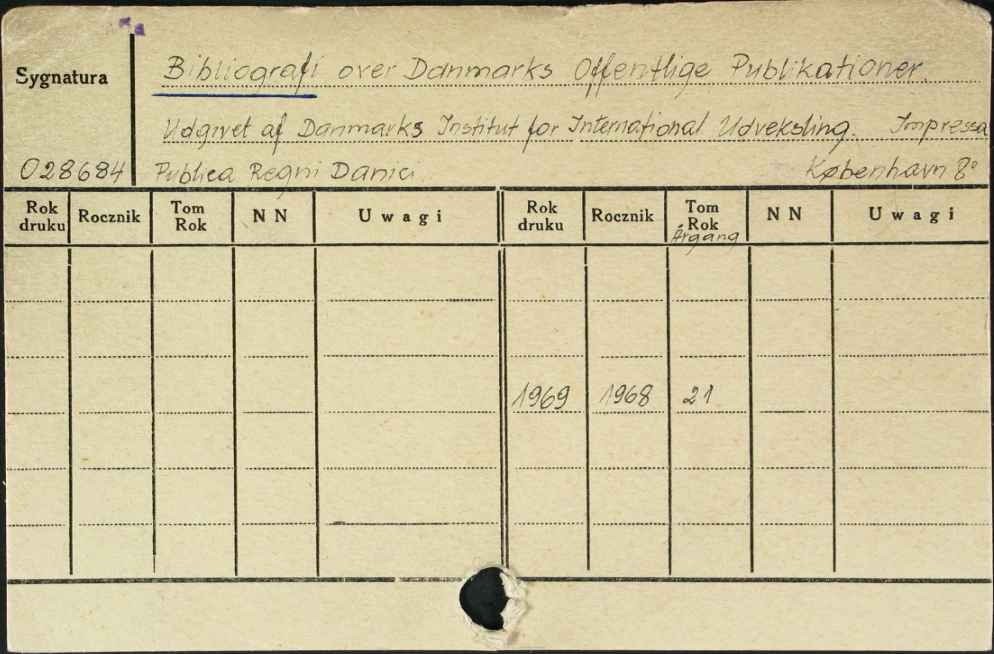 Sygnatura
Bibliografi over Danmarks Offentlige Publikationer.
Udgivet af Danmarks Institut for International Udveksling. Impressa
028684 Publica Regni Danici. København 8°
Rok druku Rocznik Tom Rok NN Uwagi Rok druku Rocznik Tom Rok Årgang NN Uwagi
1969 1968 21